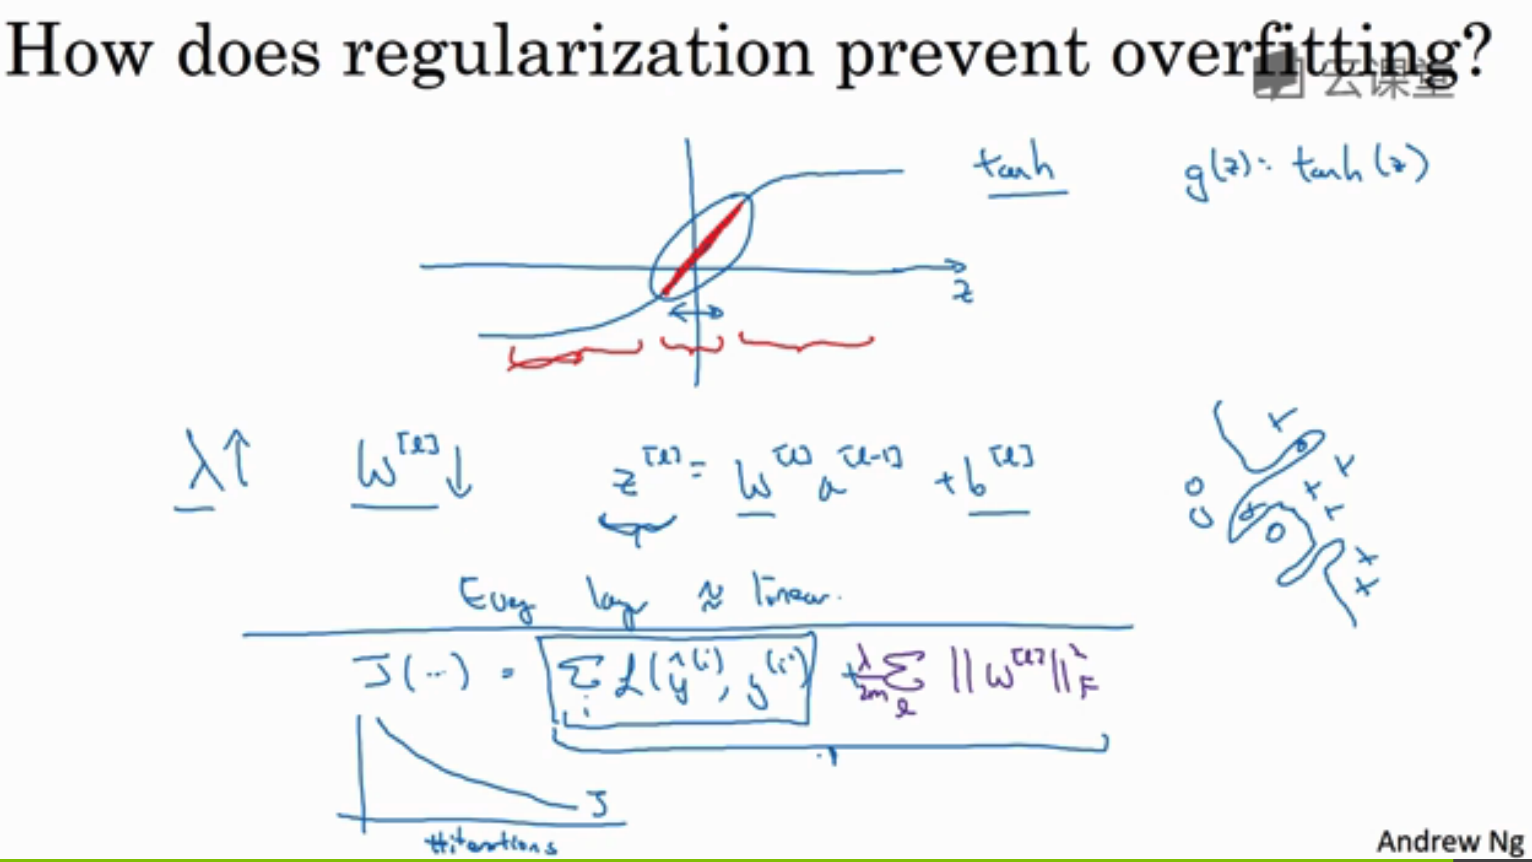 How does regularization prevent overfitting?
云课堂
tanh g(z) = tanh(z)
z
λ↑ W^[l]↓ z^[l] = W^[l] a^[l-1] + b^[l]
Every layer ≈ linear.
J(...) = Σ_i L(ŷ^(i), y^(i)) + λ/2m Σ_l ||W^[l]||²_F
J
#iterations
Andrew Ng